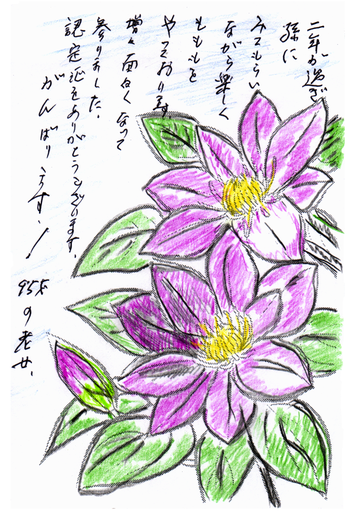 二年が過ぎ
孫に
みてもらい
ながら楽しく
ももを
やっております
増々面白くなって
参りました。
認定証をありがとうございます。
がんばります!
95才の老女.